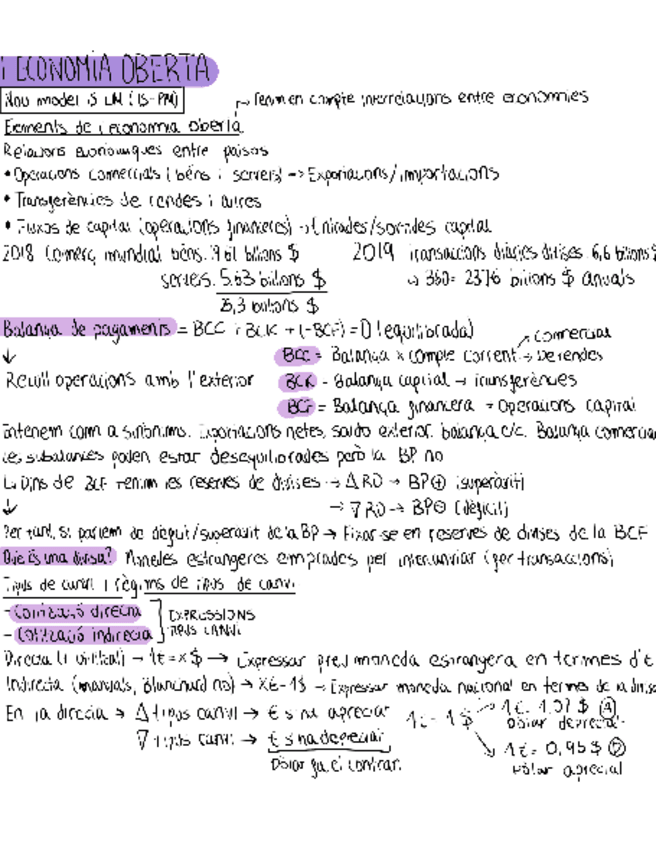 i ECONOMIA OBERTA
Nou model IS LM (IS-PM)
Tenim en compte interrelacions entre economies
Elements de l'economia oberta
Relacions econòmiques entre països
• Operacions comercials (béns i serveis) -> Exportacions/importacions
• Transferències de rendes i altres
• Fluxos de capital (operacions financeres) -> Entrades/sortides capital
2018 Comerç mundial béns: 19'61 bilions $ 2019 transaccions diàries divises: 6,6 bilions $
serveis: 5.63 bilions $ ↳ 360 = 2376 bilions $ anuals
25,3 bilions $
Balança de pagaments = BCC + BCK + (-BCF) = 0 (equilibrada)
↓ BCC = Balança x compte corrent → De rendes → comercial
Recull operacions amb l'exterior BCK = Balança capital → transferències
BCF = Balança financera → Operacions capital
Entenem com a sinònims: Exportacions netes, saldo exterior, balança c/c, Balança comercial
Les subbalances poden estar desequilibrades però la BP no
↳ Dins de BCF tenim les reserves de divises → Δ RD → BP⊕ (superàvit)
↓ → ∇ RD → BP⊖ (dèficit)
Per tant, si parlem de dèficit/superàvit de la BP → Fixar-se en reserves de divises de la BCF
Què és una divisa? Monedes estrangeres emprades per intercanviar (per transaccions)
Tipus de canvi i règims de tipus de canvi
- Cotització directa EXPRESSIONS
- Cotització indirecta TIPUS CANVI
Directa (+ utilitzat) → 1€ = x $ → Expressar preu moneda estrangera en termes d'€
Indirecta (manuals, Blanchard no) → X€ = 1$ → Expressar moneda nacional en termes de la divisa
En la directa → Δ tipus canvi → € s'ha apreciat 1€ = 1$ → 1€ = 1.07 $
∇ tipus canvi → € s'ha depreciat Dòlar depreciat
Dòlar fa el contrari ↘ 1€ = 0,95 $
Dòlar apreciat